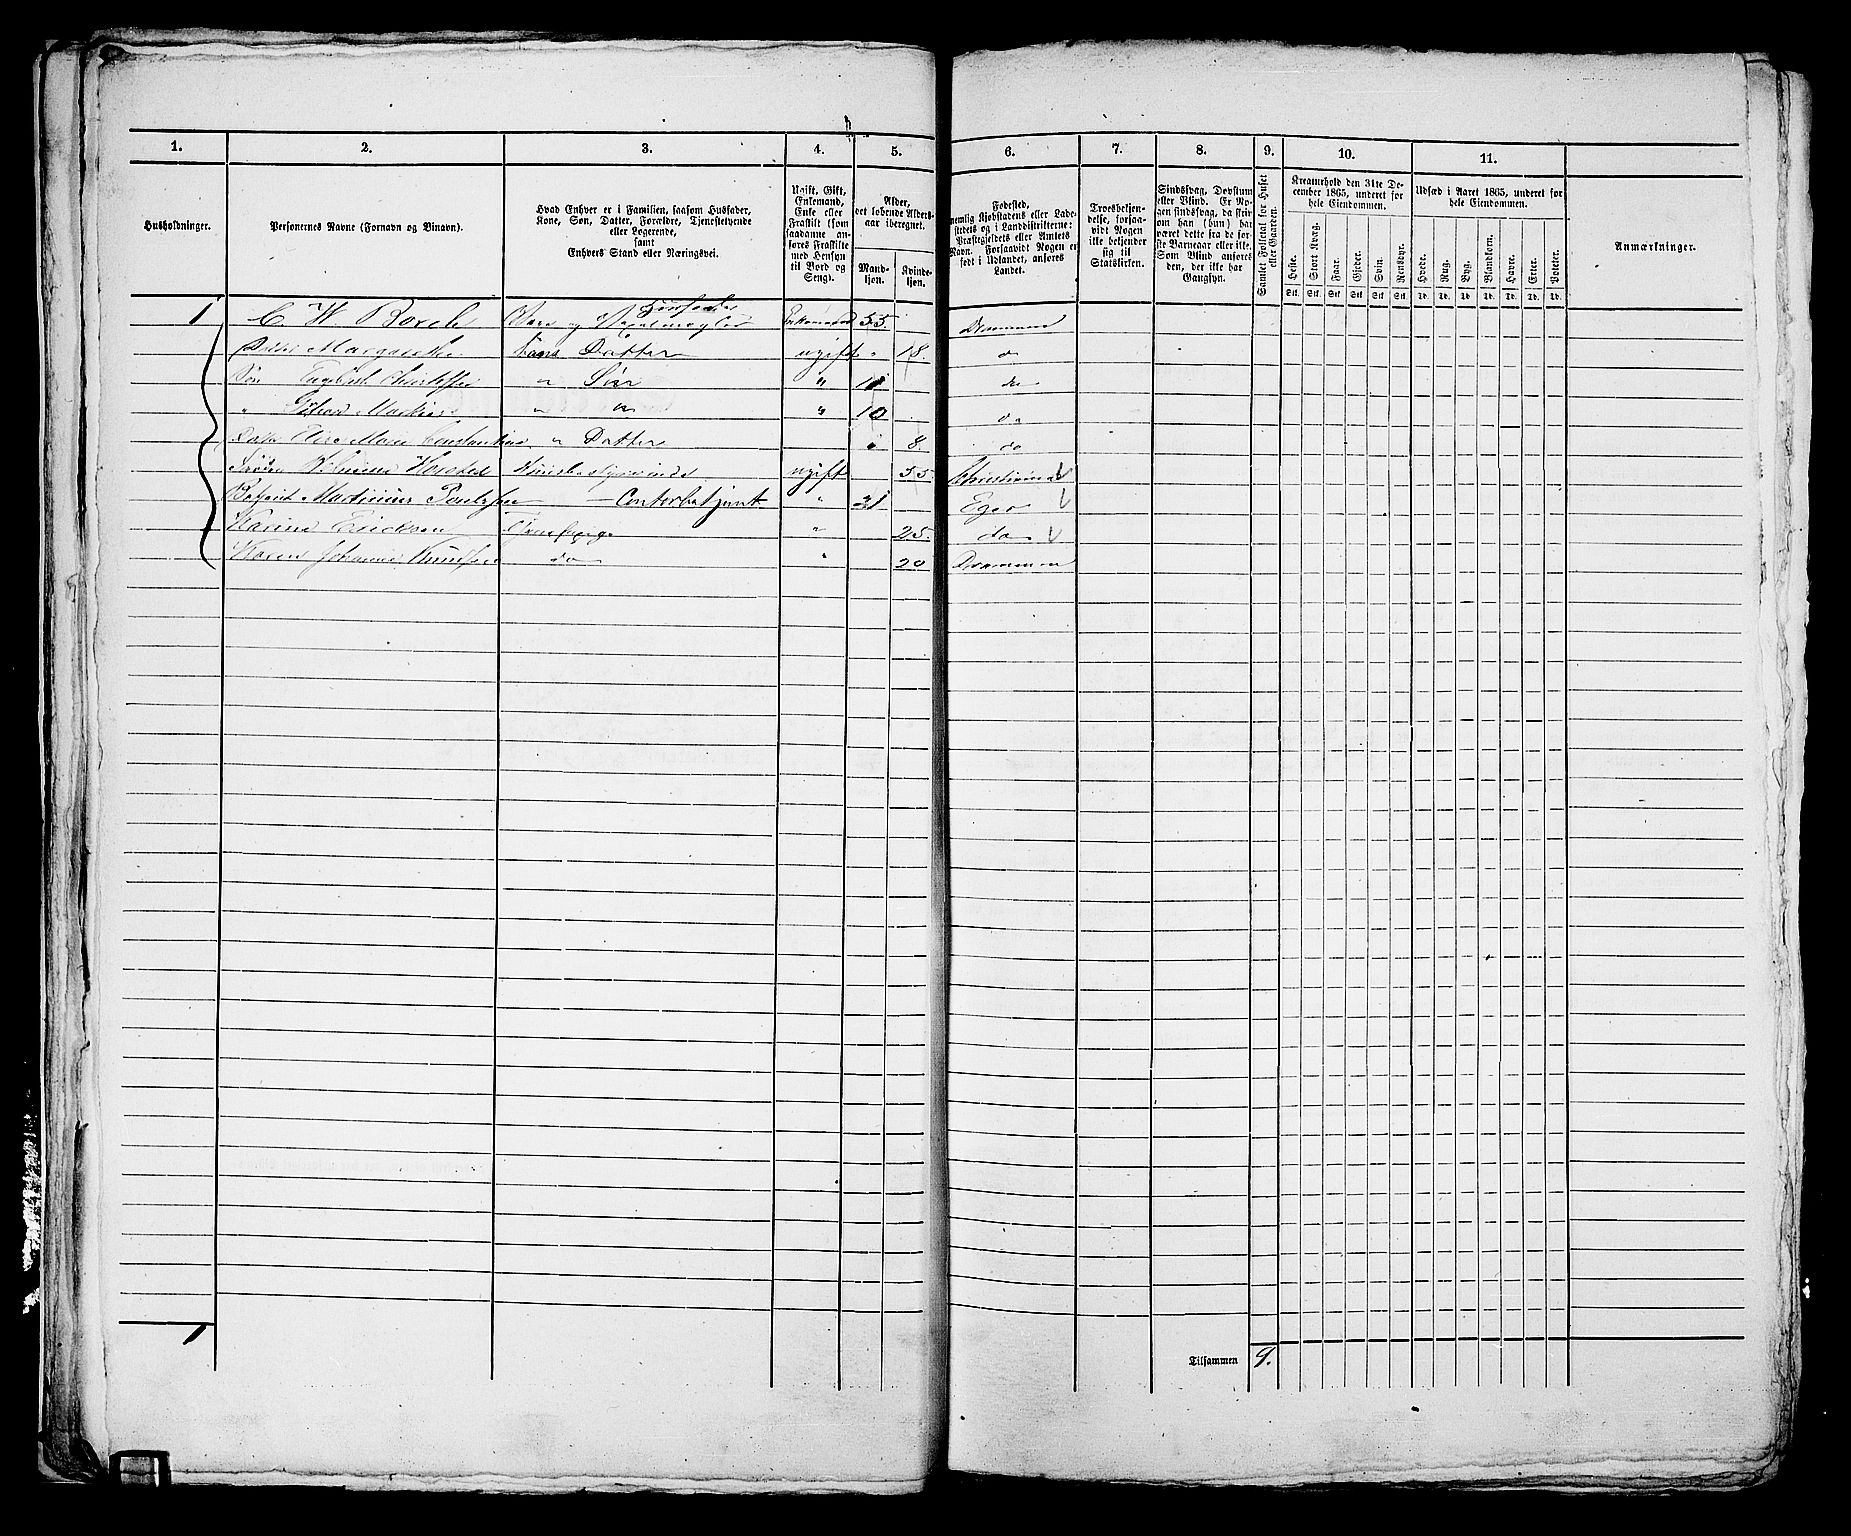 1. 2. 3. 4. 5. 6. 7. 8. 9. 10. 11.
Husholdninger.
Personernes Navne (Fornavn og Binavn).
Hvad Enhver er i Familien, saasom Husfader,
Kone, Søn, Datter, Forældre, Tjenestetyende
eller Logerende,
samt
Enhvers Stand eller Næringsvei.
Ugift, Gift,
Enkemand,
Enke eller
Fraskilt (som
saadanne an-
føres Fraskilte
med Hensyn
til Bord og
Seng).
Alder,
det løbende Alders-
aar iberegnet.
Mand-
kjøn.
Kvinde-
kjøn.
Fødested,
nemlig Kjøbstadens eller Lade-
stedets og i Landdistrikterne:
Præstegjeldets eller Amtets
Navn. Forsaavidt Nogen er
født i Udlandet, anføres
Landet.
Troesbekjen-
delse, forsaa-
vidt Nogen
ikke bekjender
sig til
Statskirken.
Sindssvag, Døvstum
eller Blind. Er No-
gen sindssvag, da skri-
ves om han (hun) har
været dette fra de før-
ste Barneaar eller ikke.
Som Blind anføres
den, der ikke har
Gangsyn.
Samlet Folketal for Huset
eller Gaarden.
Kreaturhold den 31te De-
cember 1865, underet for
hele Eiendommen.
Heste. Stort Kvæg. Faar. Gjeder. Svin. Rensdyr.
Stk. Stk. Stk. Stk. Stk. Stk.
Udsæd i Aaret 1865, underet for
hele Eiendommen.
Hvede. Rug. Byg. Blandkorn. Havre. Erter. Poteter.
Td. Td. Td. Td. Td. Td. Td.
Anmærkninger.
1 C. W. Borch Husfader Vare og Vexelmægler Enkemand 53 Drammen
Datter Margarethe hans Datter ugift " 18. do
Søn Engebret Christoffer " Søn " 11 do
" Johan Mathias " " " 10 do
Datter Elise Marie Constantine " Datter " 8. do
Vilhelmine Harstad Huusbestyrerinde ugift 55 Christiania
Betjent Martinius Paulsen Contorbetjent " 21 Eger
Karine Ericksen Tjenestepige " 25. do
Karen Johanne Knudsen do " 20 Drammen
1 Tilsammen 9.